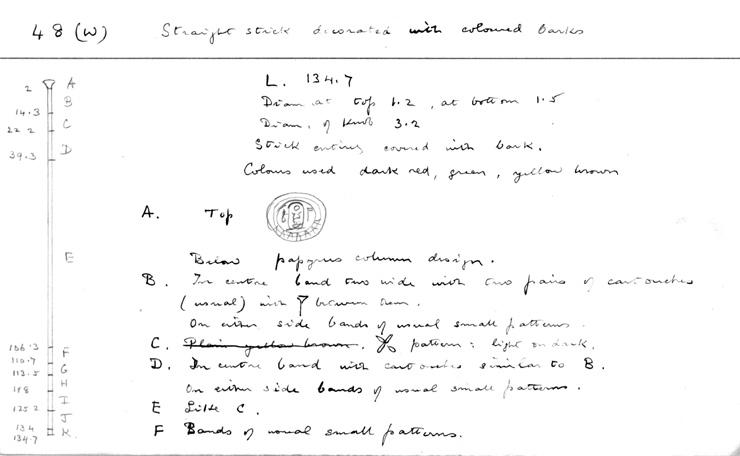 48 (W) Straight stick decorated with coloured barks
L. 134.7
Diam. at top 1.2, at bottom 1.5
Diam. of knob 3.2
Stick entirely covered with bark.
Colours used dark red, green, yellow brown
2 A
B
14.3
C
22.2
D
39.3
A. Top
E
Below papyrus column design.
B. In centre band two wide with two pairs of cartouches
(usual) with between them.
On either side bands of usual small patterns.
C. Plain yellow brown. pattern: light on dark.
D. In centre band with cartouches similar to B.
On either side bands of usual small patterns.
E Like C.
F Bands of usual small patterns.
106.3
F
110.7
G
113.5
H
118
I
125.2
J
134
134.7
K